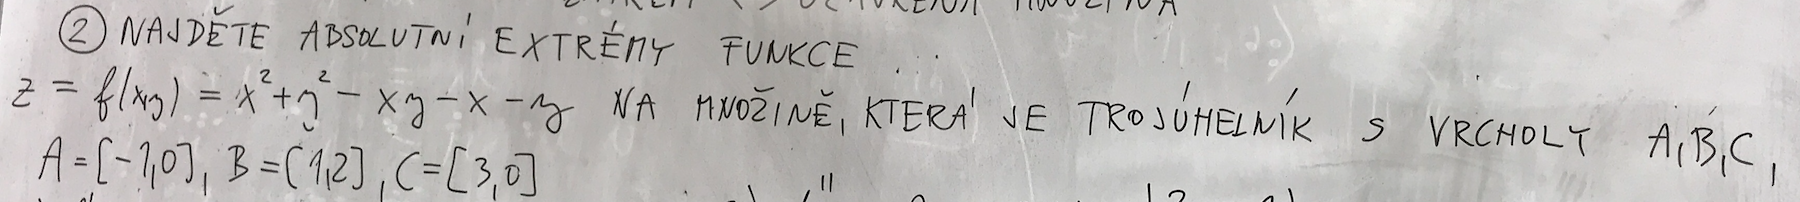 ② NAJDĚTE ABSOLUTNÍ EXTRÉMY FUNKCE ...
z = f(xy) = x² + y² - xy - x - y NA MNOŽINĚ, KTERÁ JE TROJÚHELNÍK S VRCHOLY A, B, C,
A = [-1,0], B = [1,2], C = [3,0]